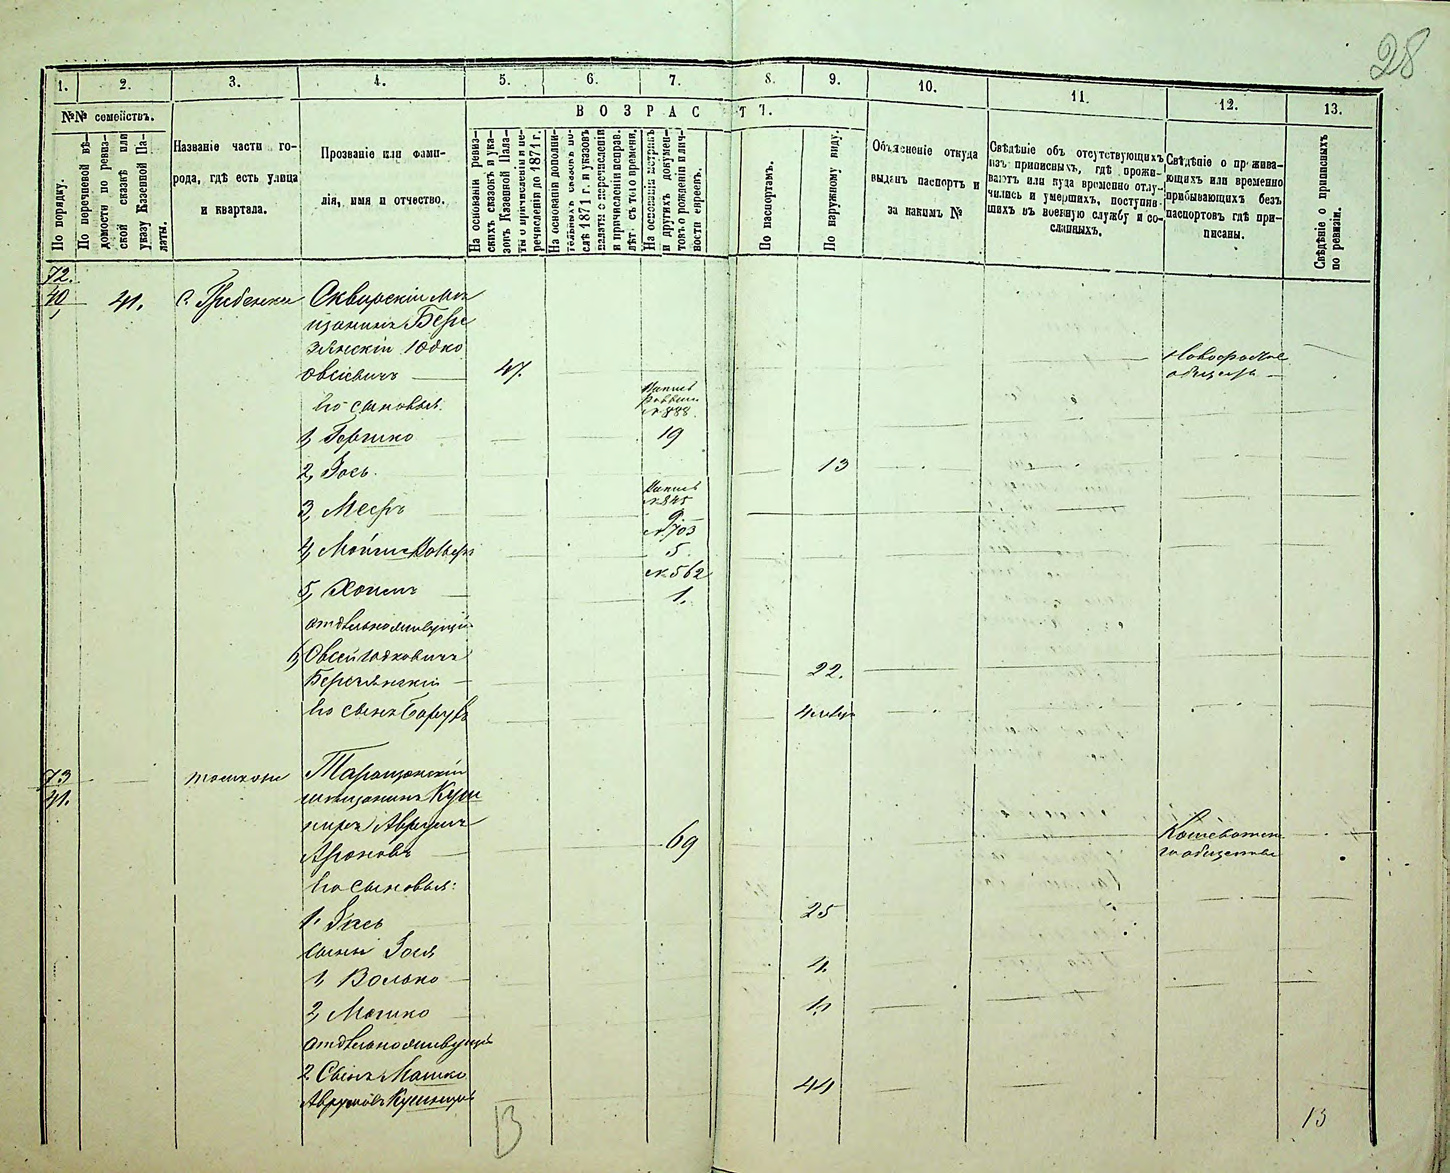 28
1. 2. 3. 4. 5. 6. 7. 8. 9. 10. 11. 12. 13.
№№ семействъ.
По порядку.
По перечневой вѣ-
домости по ревиз-
ской сказкѣ или
указу Казенной Па-
латы.
Названіе части го-
рода, гдѣ есть улица
и квартала.
Прозваніе или фами-
лія, имя и отчество.
ВОЗРАСТЪ.
На основаніи ревиз-
скихъ сказокъ и ука-
зовъ Казенной Пала-
ты о причисленіи и пе-
речисленіи до 1871 г.
На основаніи дополни-
тельныхъ сказокъ по-
слѣ 1871 г. и указовъ
палаты о перечисленіи
и причисленіи исправ.
лѣтъ съ того времени.
На основаніи метрикъ
и другихъ докумен-
товъ о рожденіи и лич-
ности евреевъ.
По паспортамъ.
По наружному виду.
Объясненіе откуда
выданъ паспортъ и
за какимъ №
Свѣдѣніе объ отсутствующихъ
изъ приписныхъ, гдѣ прожи-
ваютъ или куда временно отлу-
чились и умершихъ, поступив-
шихъ въ военную службу и со-
сланныхъ.
Свѣдѣніе о прожива-
ющихъ или временно
прибывающихъ безъ
паспортовъ гдѣ при-
писаны.
Свѣдѣніе о приписныхъ
по ревизіи.
72.
40, 41. с. Гребенки Сквирскій мѣ
щанинъ Бере
зянскій Юдко
Овсіевичъ 47.
Его сыновья.
Запись
№ 888
1, Гершко 19
2, Іось 13
Запись
№ 845
3, Мееръ 9
№ 703
4, Мойше 5
№ 562
5, Хаимъ 1.
отдѣльноживущій
1, Овсей Юдковичъ
Березянскій 22.
Его сынъ Борухъ
73
41. Таращанскій
мѣщанинъ Куш
ниръ Аврумъ
Ароновъ 69
Его сыновья:
1. Іось 25
сыны Іося
1, Волько 4.
2, Мошко 1,
отдѣльноживущій
2 Сынъ Мошко
Аврумовъ Кушниръ 44
13
13